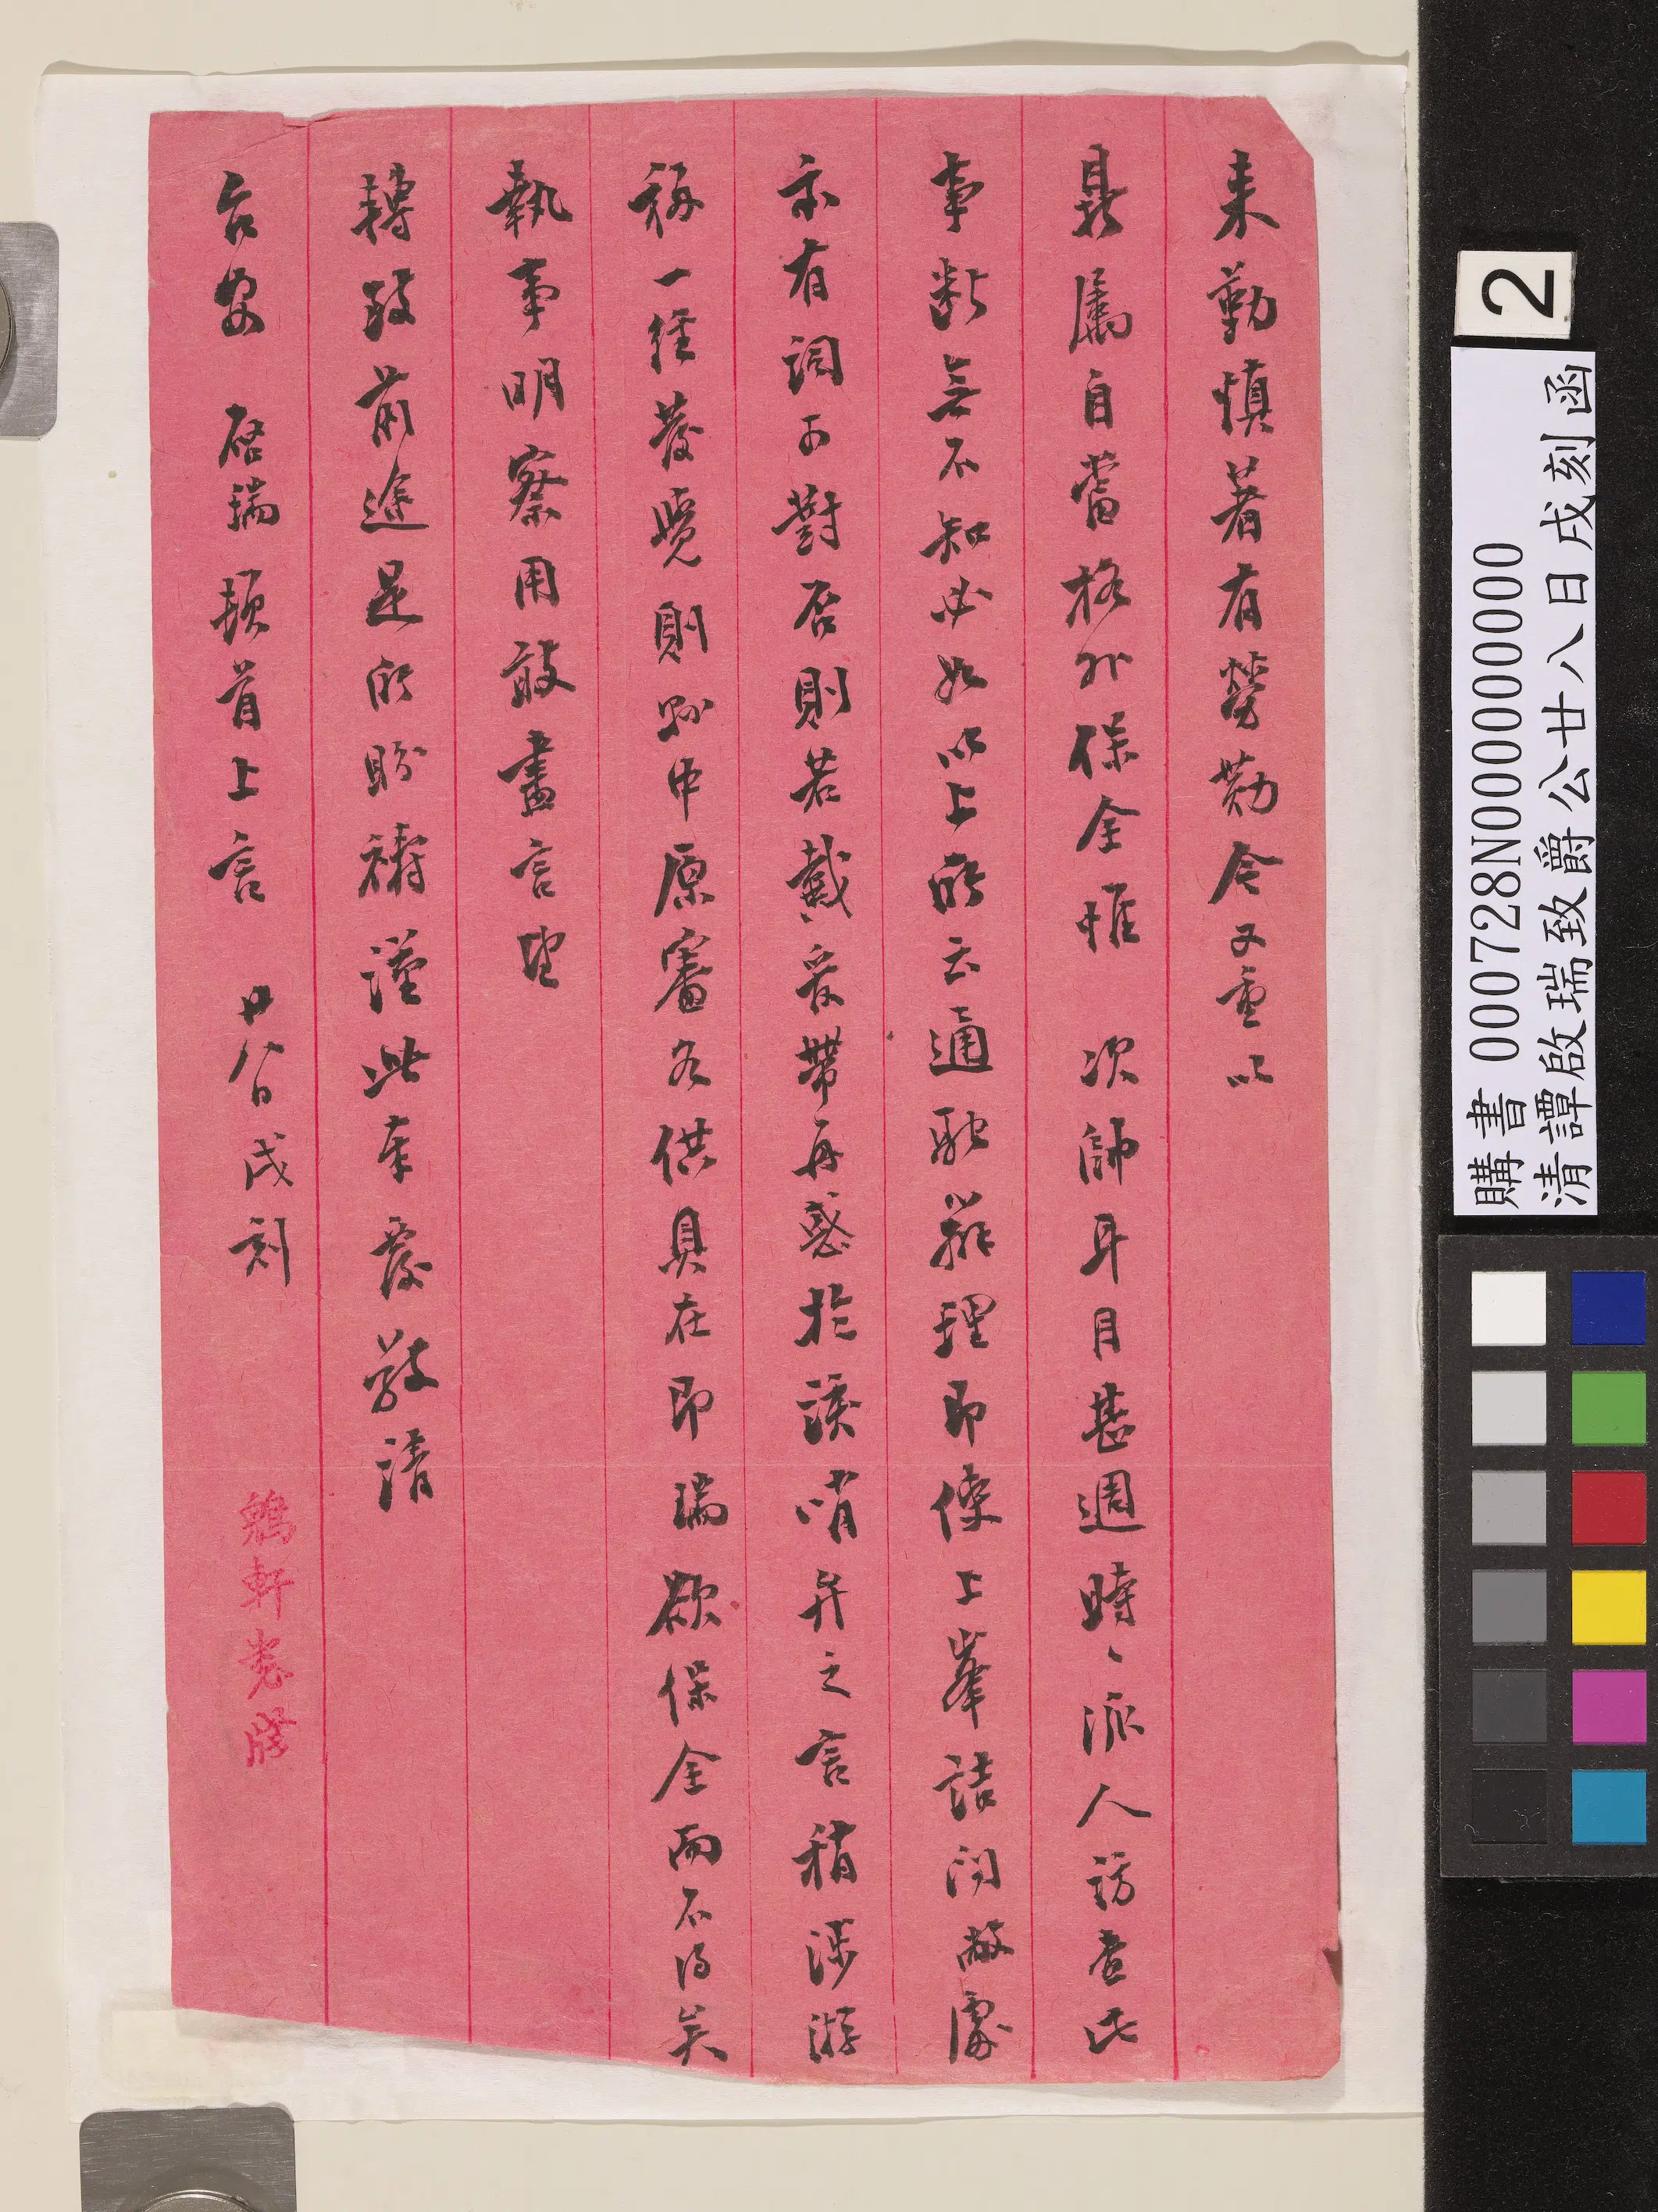 來勤慎著有勞勩今又重以
鼎屬自當格外保全惟 次帥耳目甚週時、派人訪查此
事斷無不知必如以上所云通融辦理即使上峯詰問敝處
亦有詞可對否則若戴爰帶再惑於護哨弁之言稍涉游
移一經發覺則點中原審各供具在即瑞欲保全而不得矣
執事明察用敢盡言望
轉致前途是所盼禱謹此奉覆敬請
台安 啟瑞頓首上言 廿八日戌刻
鶴軒
2
購書 000728N000000000
清譚啟瑞致爵公廿八日戌刻函